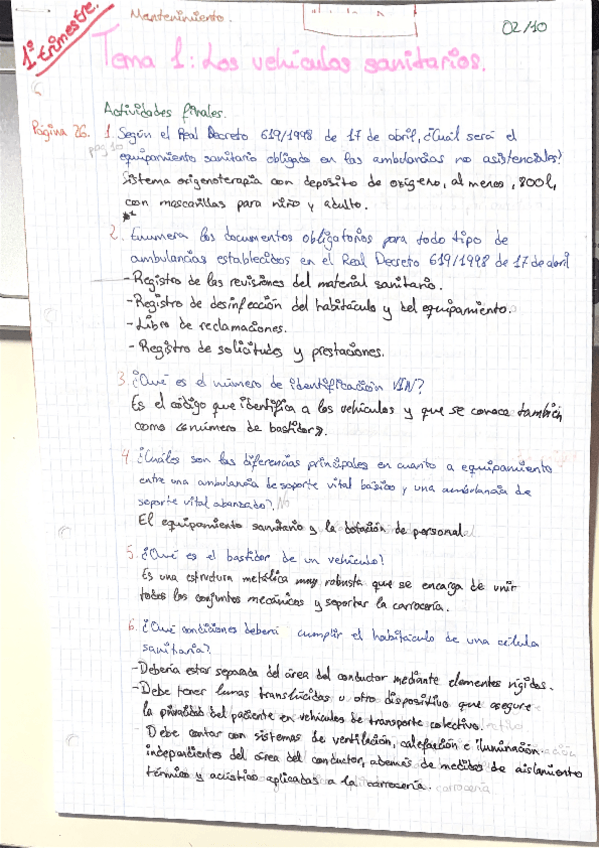 1º trimestre.
Mantenimiento.
02/10
Tema 1: Los vehículos sanitarios.
Actividades finales.
Página 26. 1. Según el Real Decreto 619/1998 de 17 de abril, ¿Cuál será el
pág 10
equipamiento sanitario obligado en las ambulancias no asistenciales?
Sistema oxigenoterapia con deposito de oxígeno, al menos, 800l,
con mascarillas para niño y adulto.
2. Enumera los documentos obligatorios para todo tipo de
ambulancias establecidos en el Real Decreto 619/1998 de 17 de abril
- Registro de las revisiones del material sanitario.
- Registro de desinfección del habitáculo y del equipamiento.
- Libro de reclamaciones.
- Registro de solicitudes y prestaciones.
3. ¿Qué es el número de identificación VIN?
Es el código que identifica a los vehículos y que se conoce también
como «número de bastidor».
4. ¿Cuáles son las diferencias principales en cuanto a equipamiento
entre una ambulancia de soporte vital básico y una ambulancia de
soporte vital abanzado? No
El equipamiento sanitario y la dotación de personal.
5. ¿Qué es el bastidor de un vehículo?
Es una estructura metálica muy robusta que se encarga de unir
todos los conjuntos mecánicos y soportar la carrocería.
6. ¿Qué condiciones deberá cumplir el habitáculo de una célula
sanitaria?
- Debería estar separada del área del conductor mediante elementos rígidos.
- Debe tener lunas translúcidas u otro dispositivo que asegure
la privacidad del paciente en vehículos de transporte colectivo.
Debe contar con sistemas de ventilación, calefacción e iluminación
independientes del área del conductor, además de medidas de aislamiento
térmico y acústico aplicadas a la carrocería. carrocería